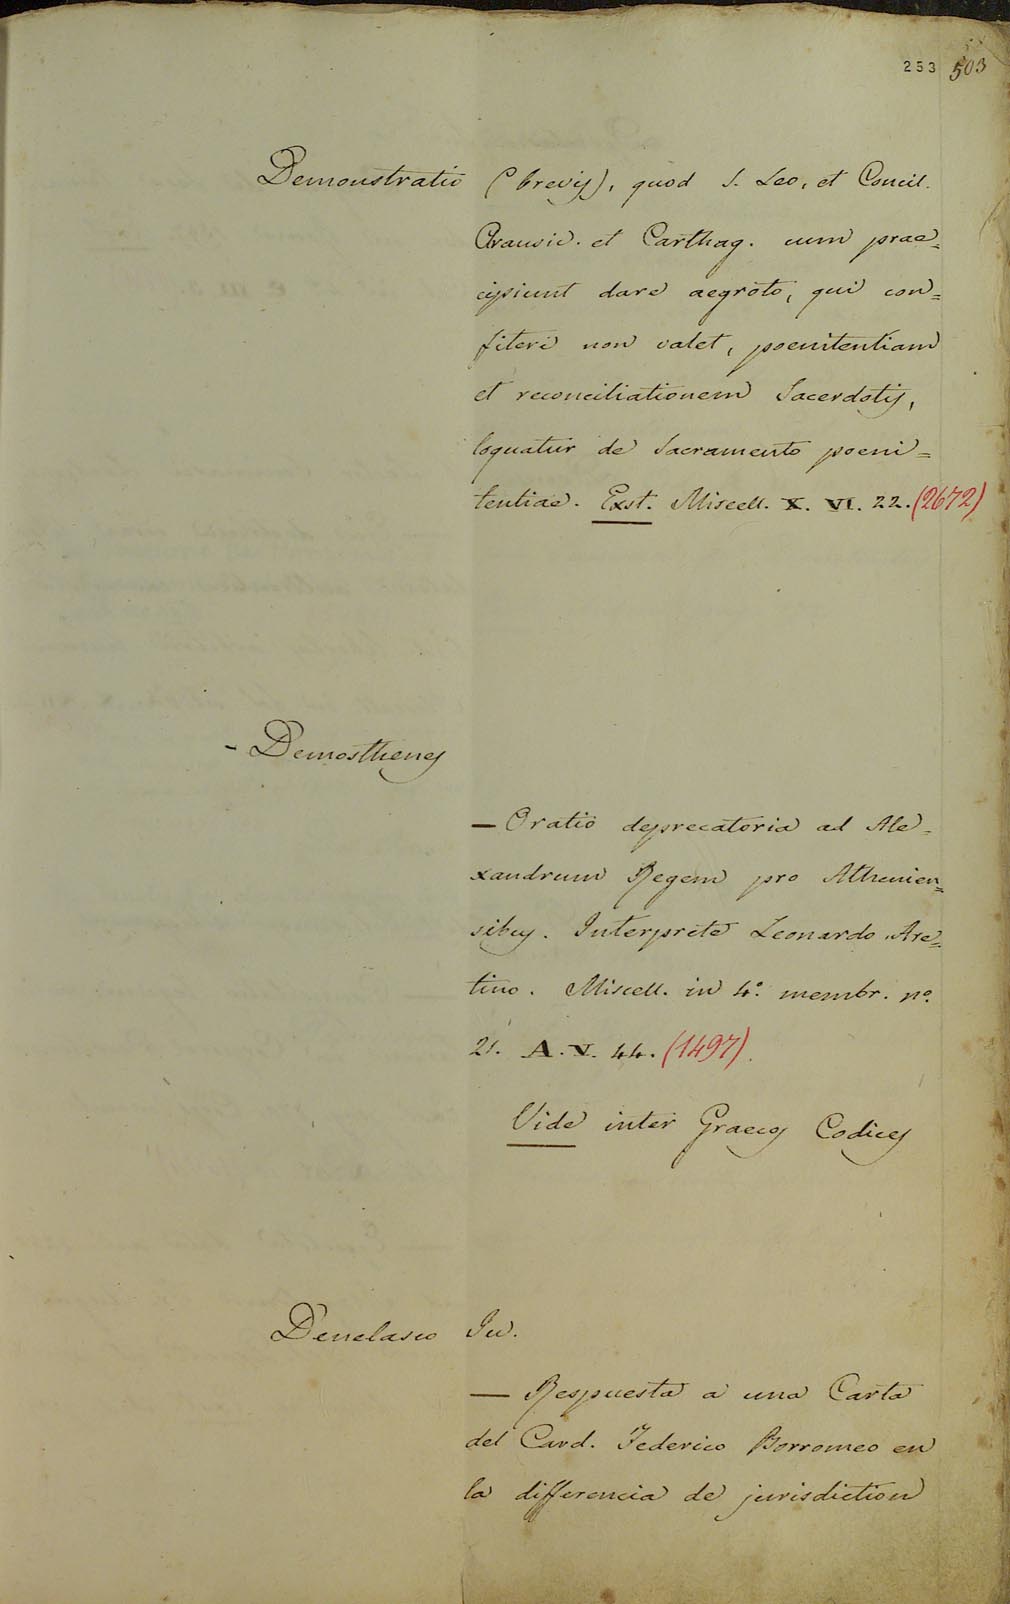 253 503
Demonstratio (brevis), quod S. Leo, et Concil.
Arausic. et Carthag. cum prae=
cipiunt dare aegroto, qui con=
fiteri non valet, poenitentiam
et reconciliationem Sacerdotis,
loquatur de Sacramento poeni=
tentiae. Exst. Miscell. X. VI. 22. (2672)
- Demosthenes
— Oratio deprecatoria ad Ale=
xandrum Regem pro Athenien=
sibus. Interprete Leonardo Are=
tino. Miscell. in 4.° membr. n.°
21. A. V. 44. (1497)
Vide inter Graecos Codices
Denelasco Iu.
— Respuesta a una Carta
del Card. Federico Borromeo en
la differencia de jurisdiction